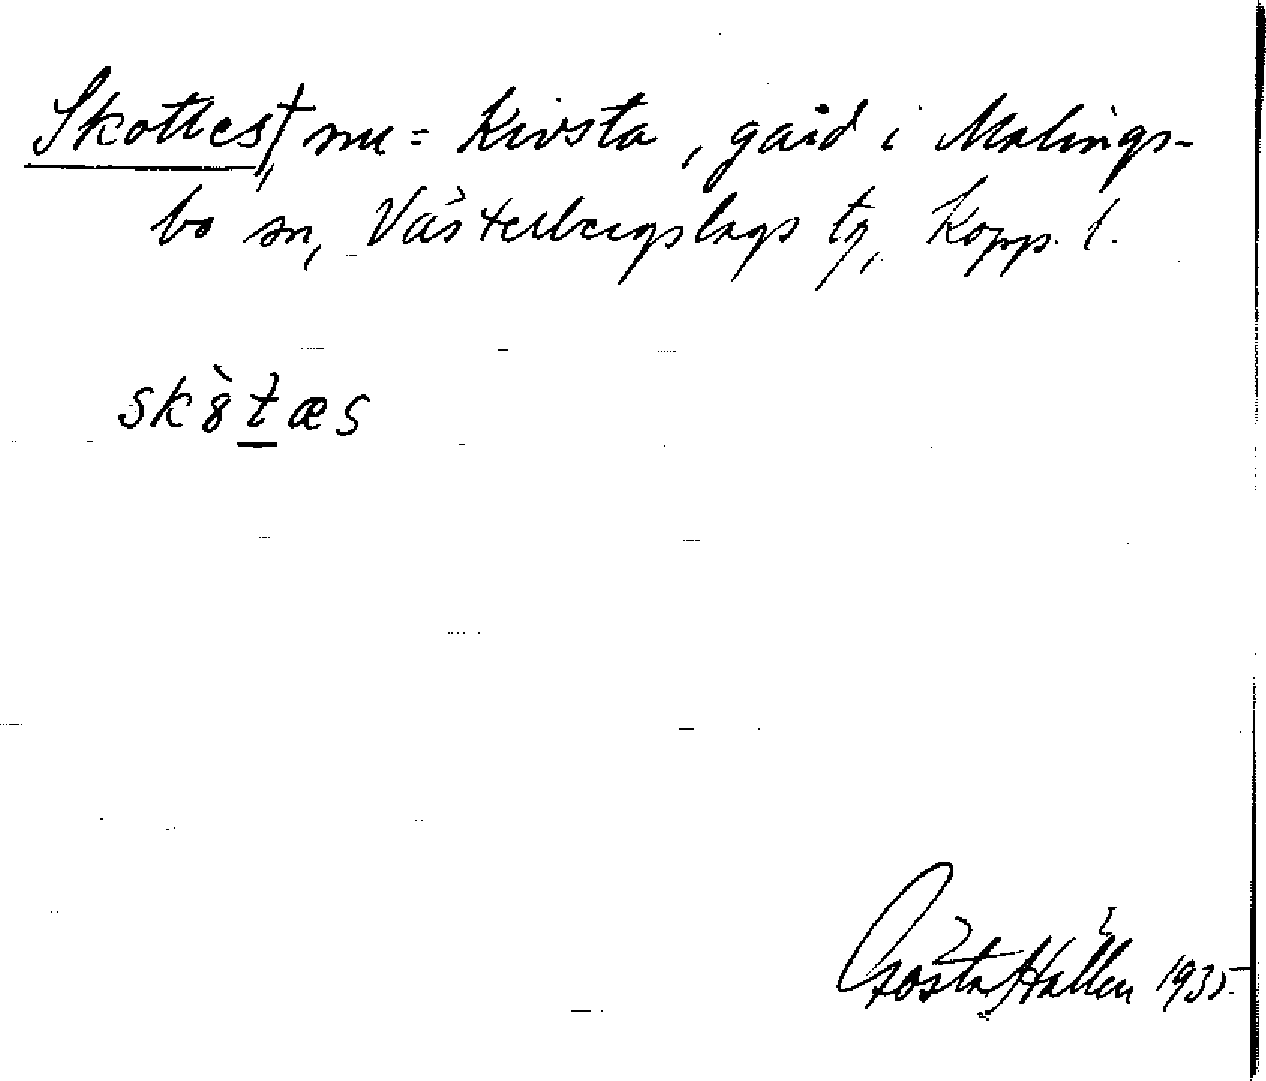 Skottes†, nu = Kivsta, gård i Malings-
bo sn, Västerbergslags tg, Kopp. l.
sk8̀t̲æs
Gösta Hallén 1935.